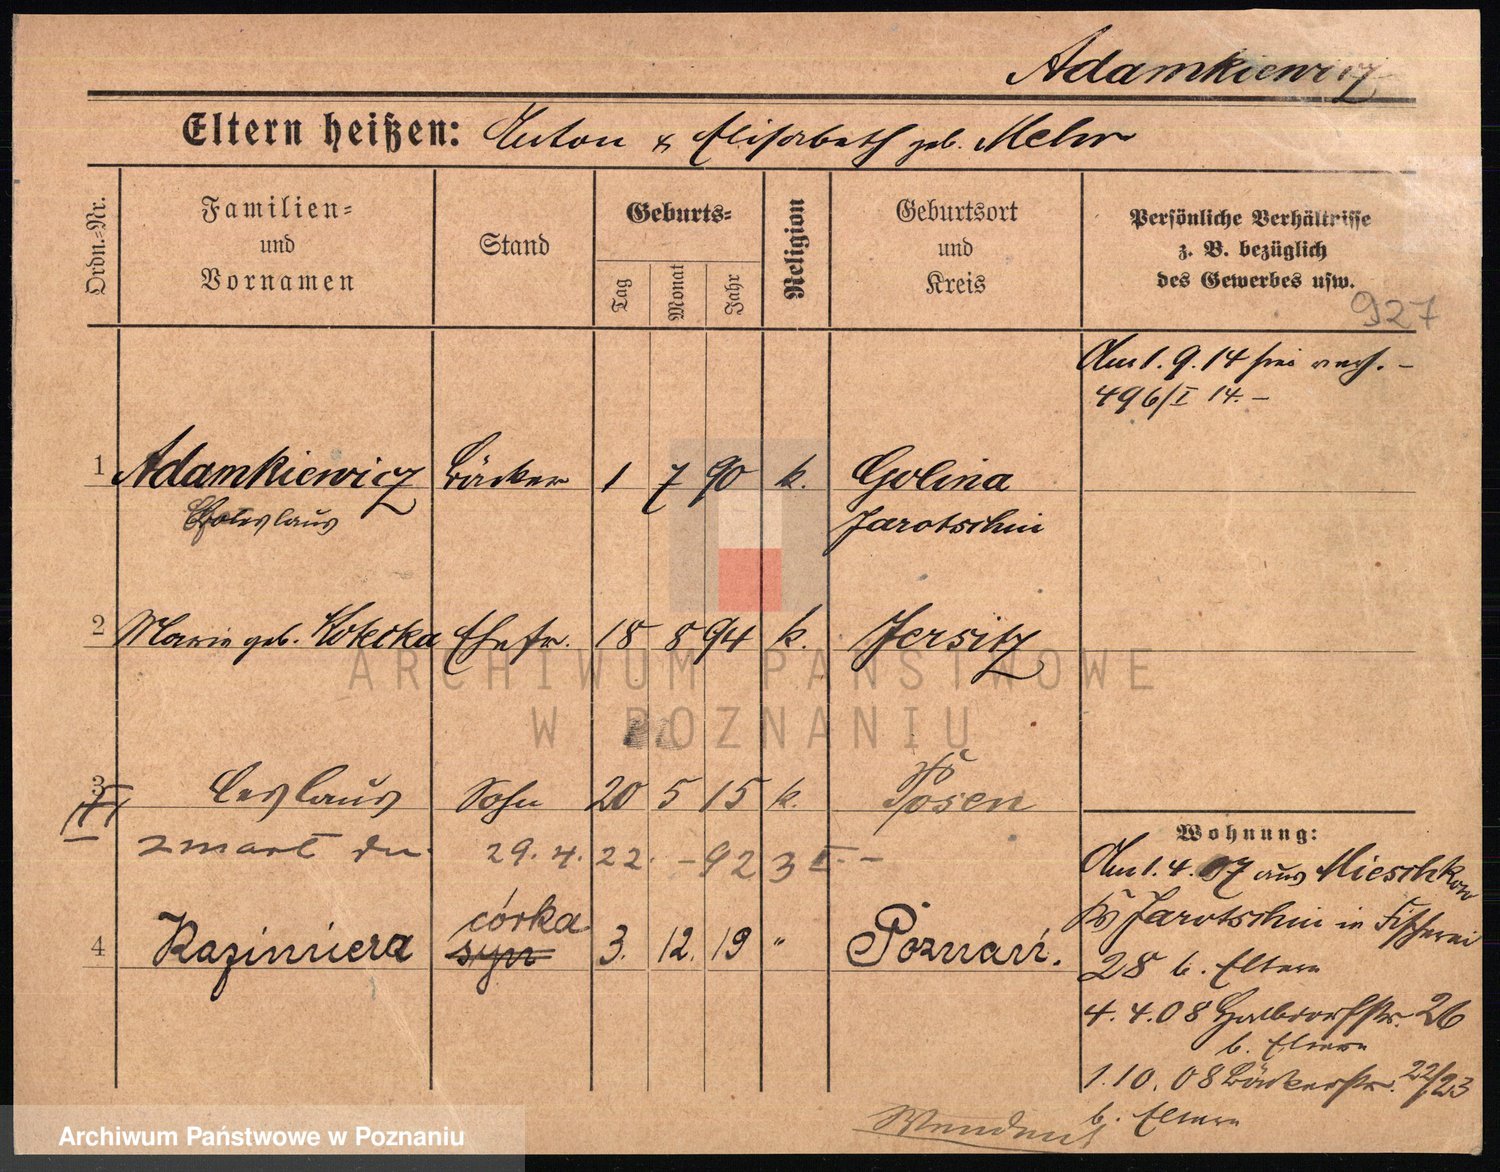 Adamkiewicz
Eltern heißen: Anton & Elisabeth geb. Mehr
Ordn.-Nr.
Familien- und Vornamen
Stand
Geburts-
Tag Monat Jahr
Religion
Geburtsort und Kreis
Persönliche Verhältnisse
z. B. bezüglich
des Gewerbes usw.
927
Am 1. 9. 14 hier verh. –
496/I 14. –
1 Adamkiewicz Bäcker 1 7 90 k. Golina
Boleslaus Jarotschin
2 Marie geb. Kokocka Ehefr. 18 8 94 k. Jersitz
ARCHIWUM PAŃSTWOWE
W POZNANIU
3 Ceslaus Sohn 20 5 15 k. Posen
zmarł dn. 29. 4. 22. – 923 I. –
córka
4 Kazimiera syn 3. 12. 19 " Poznań.
Wohnung:
Am 1. 4. 07 aus Mieschkow
Kr Jarotschin in Fischerei
28 b. Eltern
4. 4. 08 Halbdorfstr. 26
b. Eltern
1. 10. 08 Bäckerstr. 22/23
b. Eltern
Archiwum Państwowe w Poznaniu